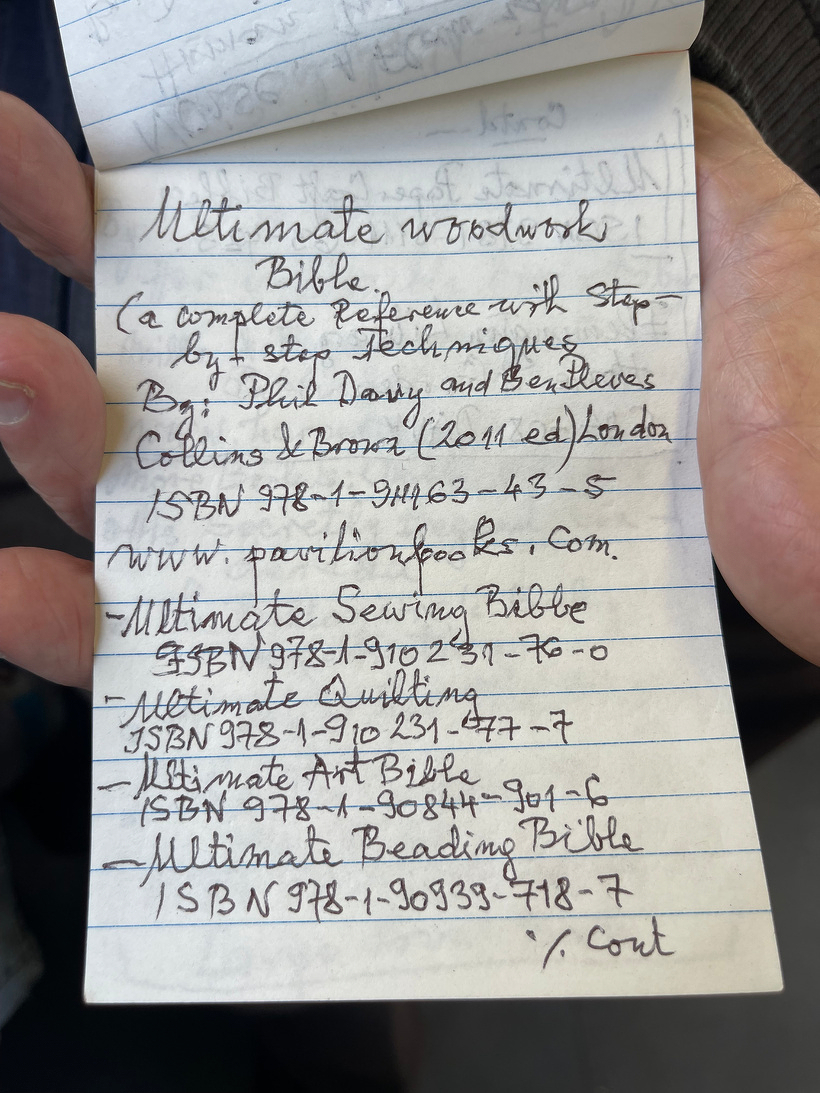 Contd —
Ultimate PaperCraft Bible
Ultimate woodwork
Bible.
(a complete Reference with Step—
by - step Techniques
By: Phil Davy and Ben Plewes
Collins & Brown (2011 ed) London
ISBN 978-1-911163-43-5
www.pavilionbooks.com.
- Ultimate Sewing Bible
ISBN 978-1-910231-76-0
- Ultimate Quilting
ISBN 978-1-910 231-77-7
— Ultimate Art Bible
ISBN 978-1-90844-901-6
— Ultimate Beading Bible
ISBN 978-1-90939-718-7
·/. Cont